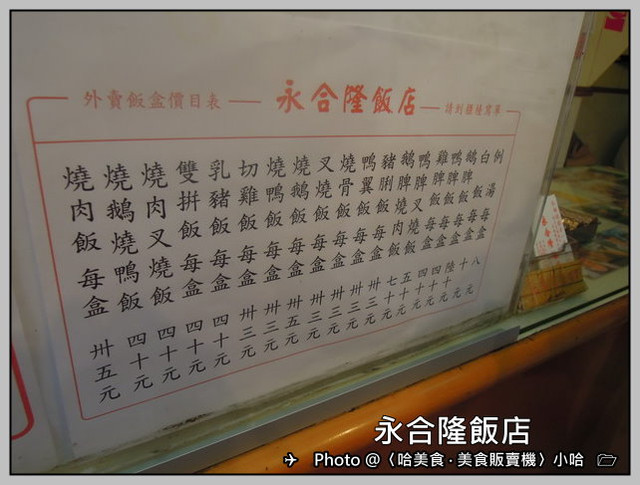 外賣飯盒價目表
永合隆飯店
燒肉飯每盒卅五元
燒鵝燒鴨飯四十元
燒肉叉燒飯四十元
雙拼飯每盒四十元
乳豬飯每盒四十元
切雞飯每盒卅三元
燒鴨飯每盒卅三元
燒鵝飯每盒卅五元
叉燒飯每盒卅三元
燒骨飯每盒卅三元
鴨翼飯每盒卅三元
豬脷飯每盒卅三元
鵝脾燒肉飯七十元
鴨脾叉燒飯五十元
雞脾飯每盒四十元
鴨脾飯每盒四十元
鵝脾飯每盒陸十元
白飯每盒十元
例湯八元
永合隆飯店
Photo @〈哈美食 · 美食販賣機〉小哈